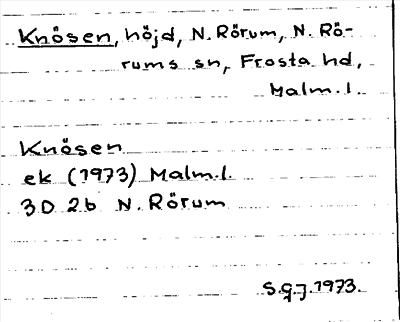 Knösen, höjd, N. Rörum, N. Rö-
rums sn, Frosta hd,
Malm. l.
Knösen
ek (1973) Malm.l.
3D 2b N. Rörum
S.G.J. 1973.